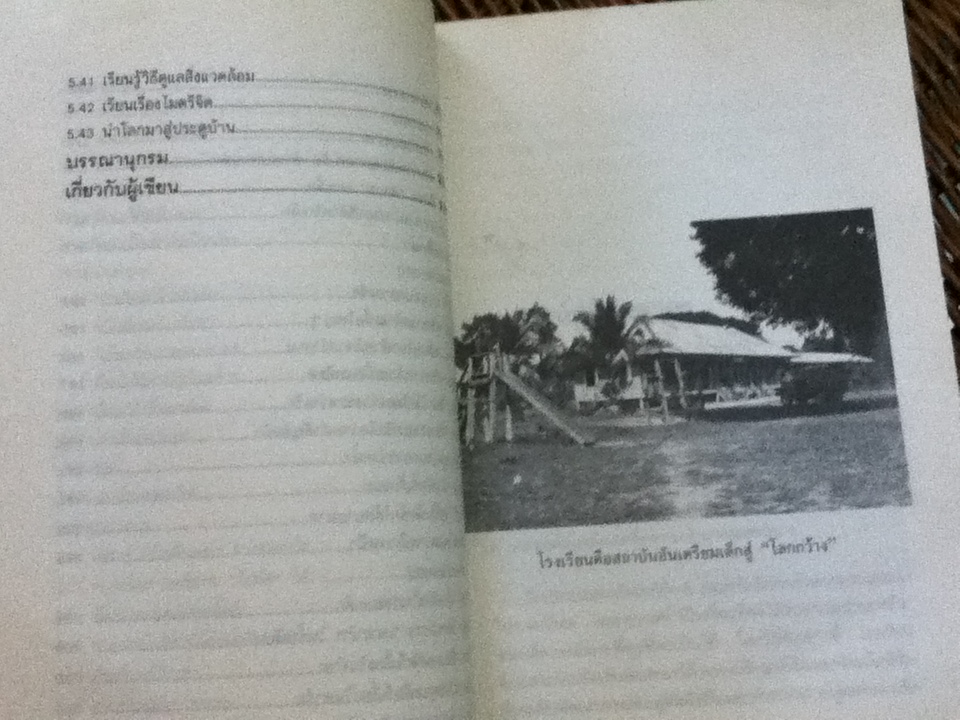 5.41 เรียนรู้วิธีดูแลสิ่งแวดล้อม
5.42 เรียนเรื่องไมตรีจิต
5.43 นำโลกมาสู่ประตูบ้าน
บรรณานุกรม
เกี่ยวกับผู้เขียน
โรงเรียนคือสถาบันอันเตรียมเด็กสู่ “โลกกว้าง”